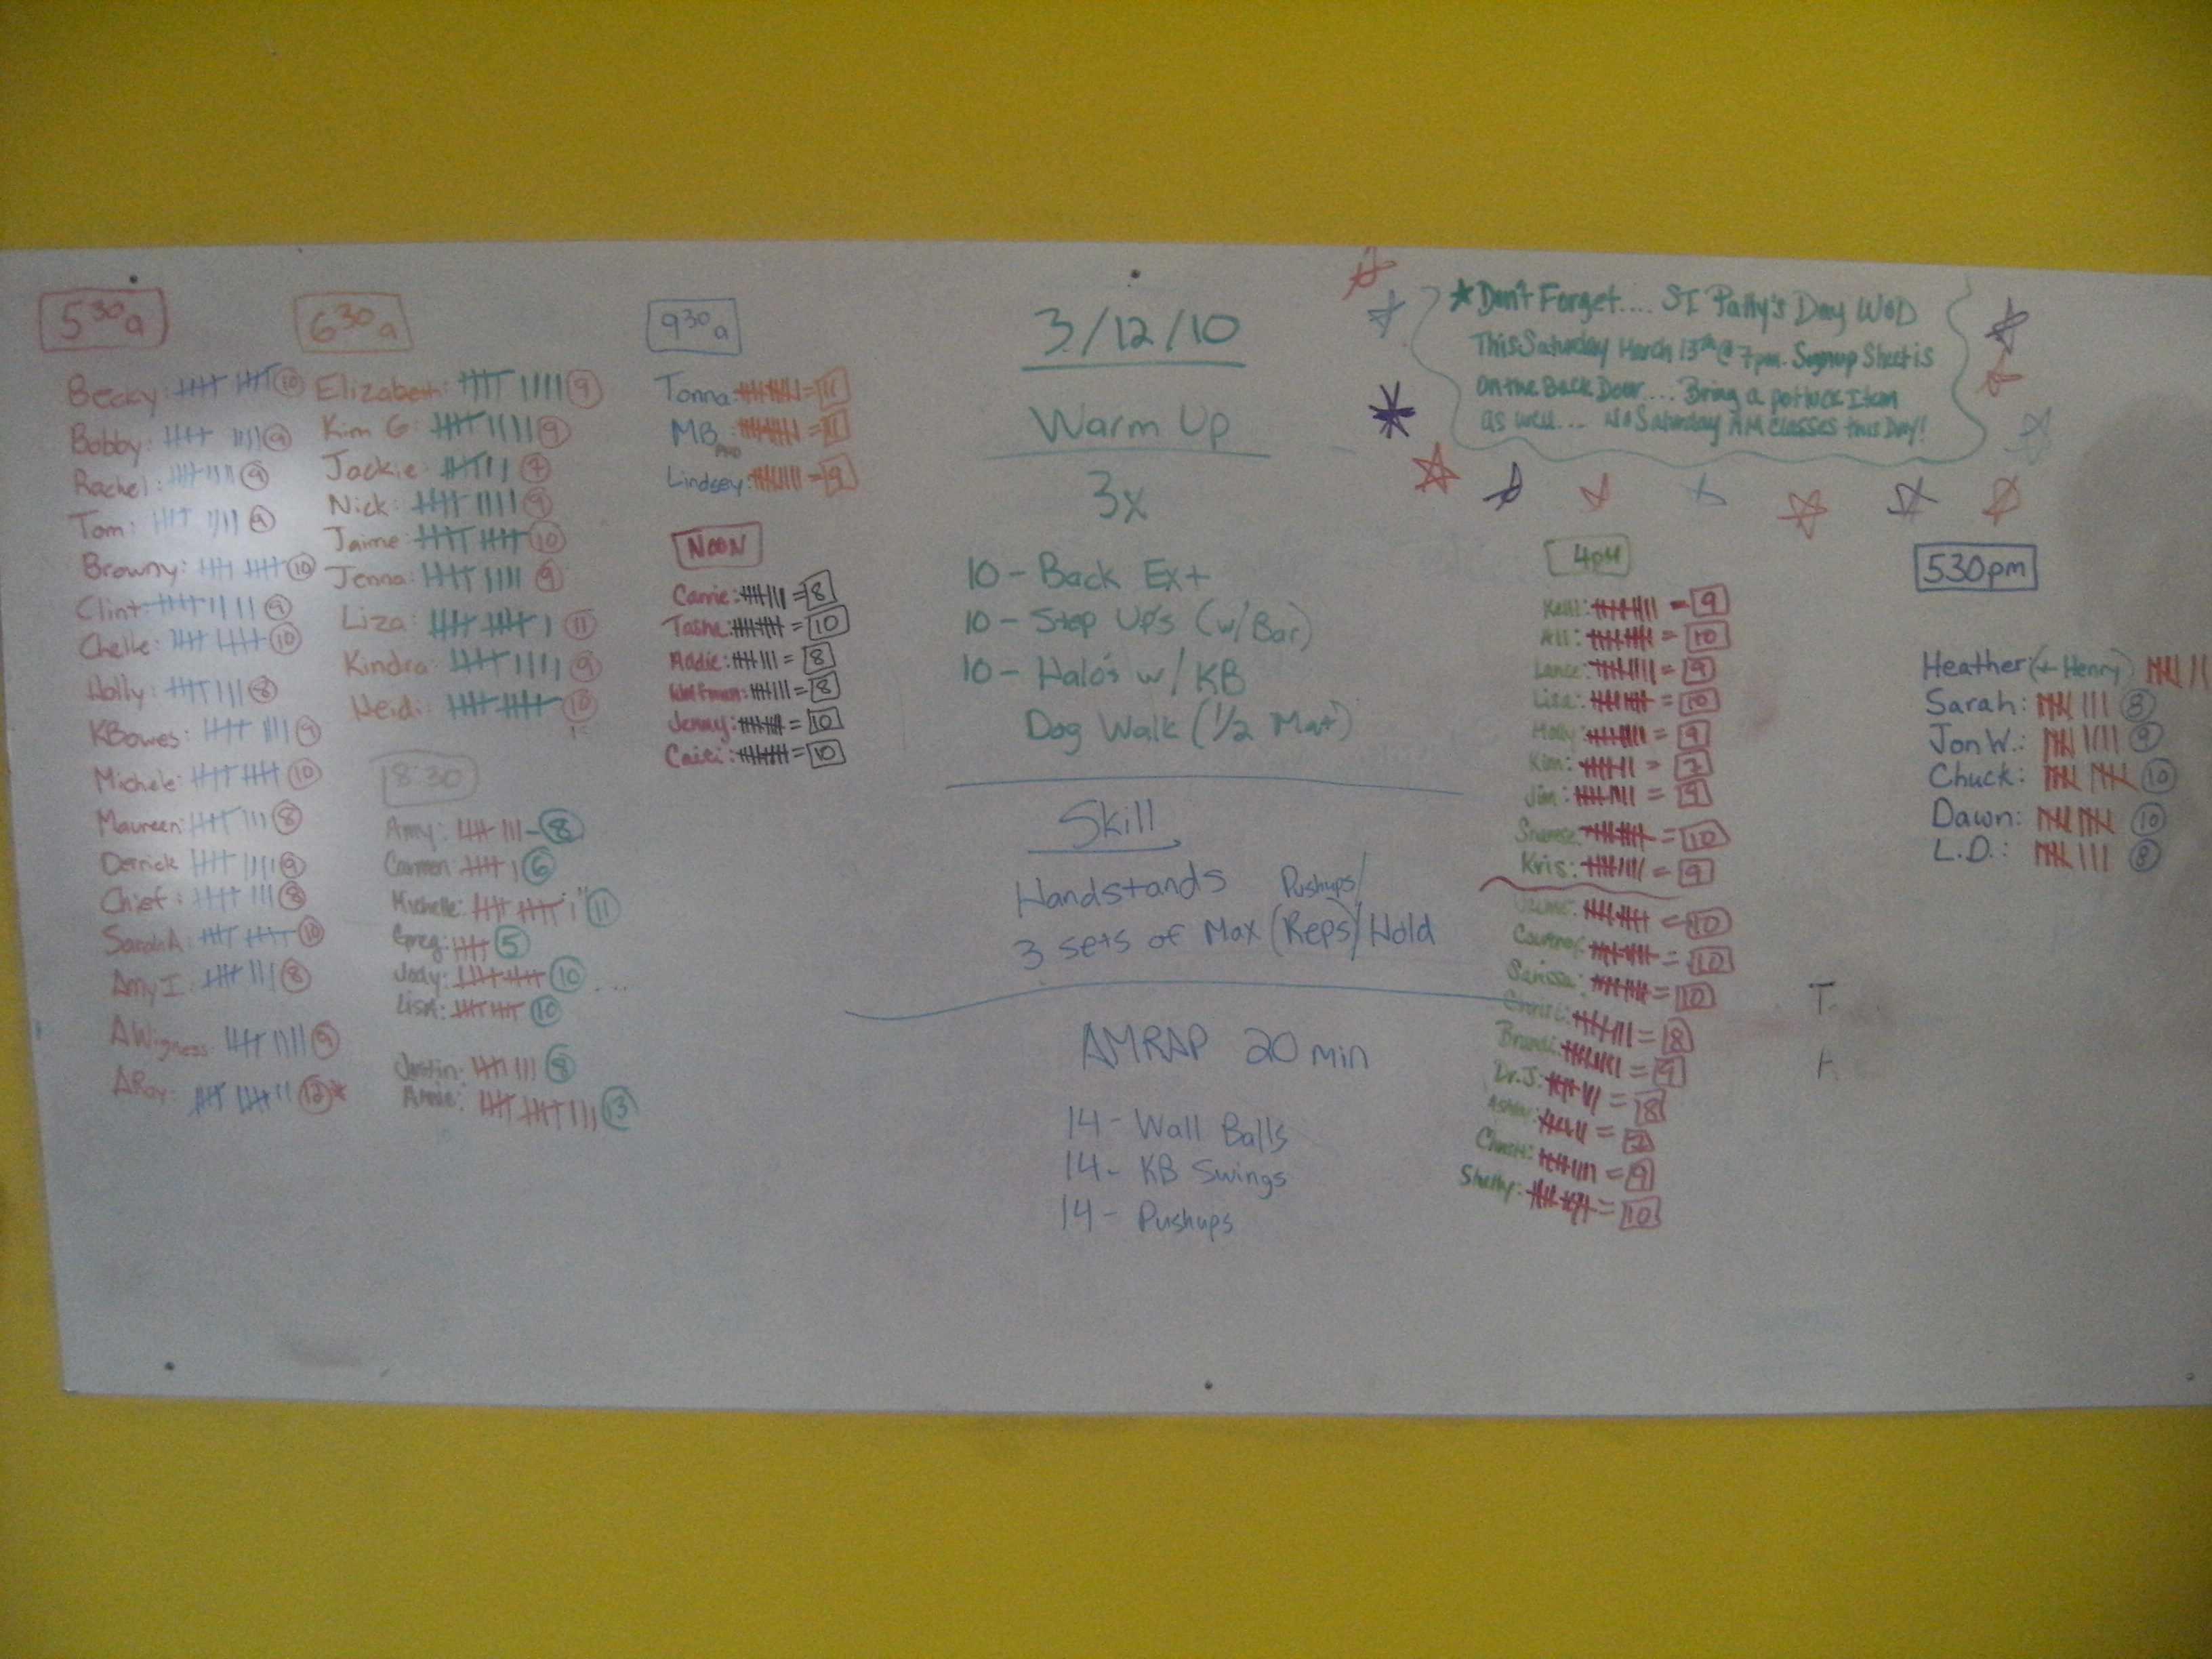 5 30 a
Becky: 10
Bobby: 9
Rachel: 9
Tom: 9
Browny: 10
Clint: 9
Chelle: 10
Holly: 8
KBowes: 9
Michele: 10
Maureen: 8
Derrick 9
Chief: 8
SarahA: 10
Amy I: 8
AWigness 9
ARoy: 12*
6 30 a
Elizabeth: 9
Kim G: 9
Jackie: 7
Nick: 9
Jaime: 10
Jenna: 9
Liza: 11
Kindra: 9
Heidi: 10
8:30
Amy: - 8
Carmen: 6
Michelle: 11
Greg: 5
Jody: 10
Lisa: 10
Justin: 8
Annie: 13
9 30 a
Tonna: = 11
MB = 11
Lindsey: = 9
NOON
Carrie: = 8
Tasha: = 10
Addie: = 8
Wolfman: = 8
Jenny: = 10
Caiti: = 10
3/12/10
Warm Up
3x
10 - Back Ext
10 - Step Up's (w/Bar)
10 - Halo's w/ KB
Dog Walk (1/2 Mat)
Skill
Handstands Pushups/
3 sets of Max (Reps)/Hold
AMRAP 20 min
14 - Wall Balls
14 - KB Swings
14 - Pushups
*Don't Forget.... ST Patty's Day WOD
This Saturday March 13th @ 7pm. Signup Sheet is
on the Back Door.... Bring a potluck Item
as well... No Saturday AM classes this Day!
4pm
Kelli: = 9
Ali: = 10
Lance: = 9
Lisa: = 10
Molly: = 9
Kim: = 7
Jim: = 9
= 10
Kris: = 9
= 10
Courtney: = 10
Sarissa: = 10
Christi: = 8
Brandi: = 9
Dr. J: = 8
Ashley: = 7
= 9
Shelby: = 10
530pm
Heather (+ Henry)
Sarah: 8
Jon W.: 9
Chuck: 10
Dawn: 10
L.D.: 8